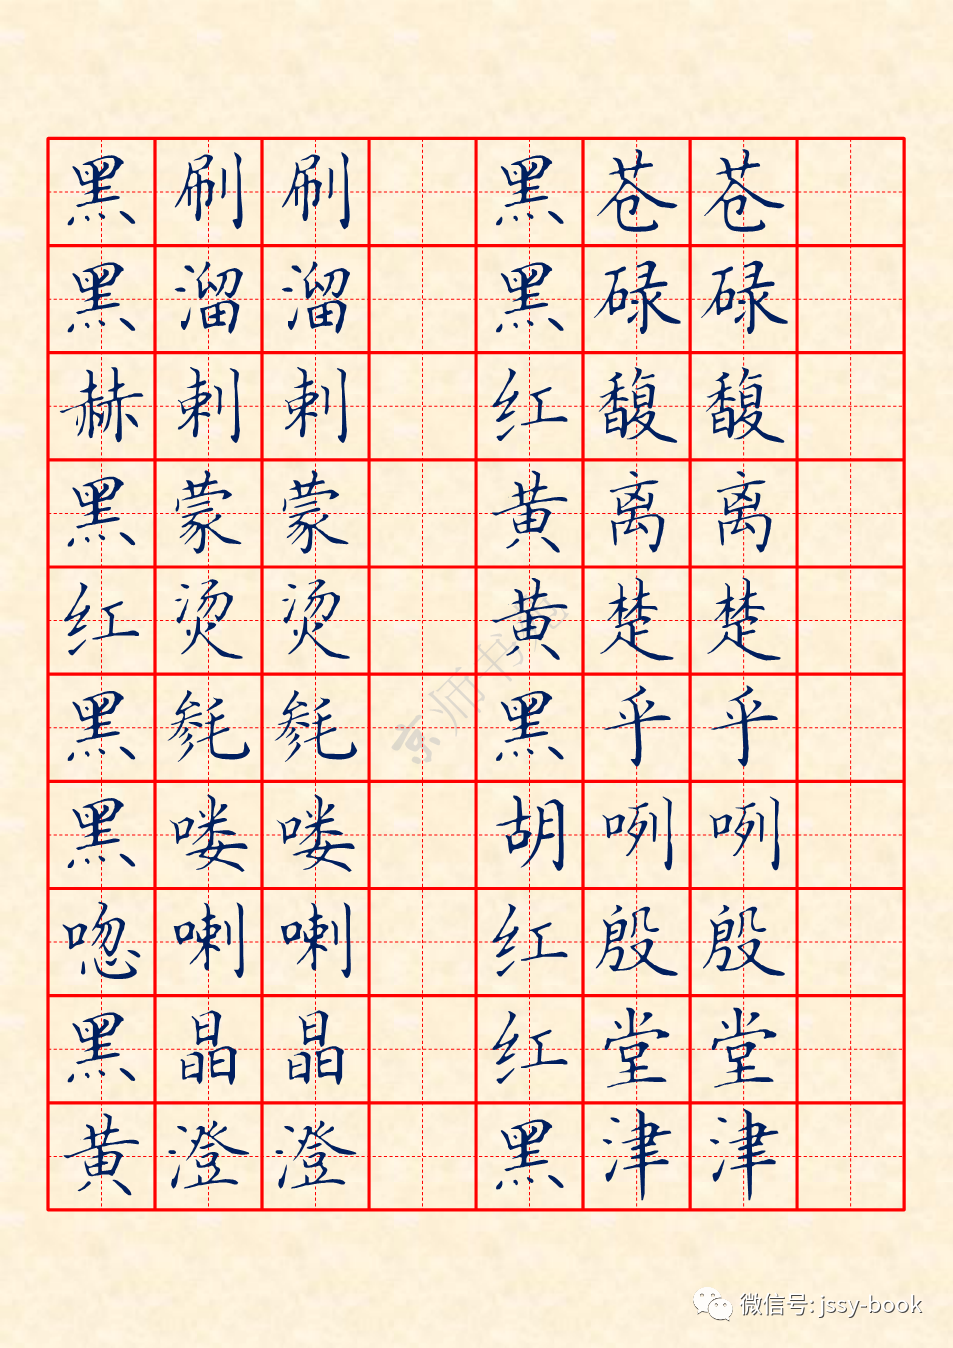 黑刷刷 黑苍苍
黑溜溜 黑碌碌
赫剌剌 红馥馥
黑蒙蒙 黄离离
红烫烫 黄楚楚
黑毵毵 黑乎乎
黑喽喽 胡咧咧
唿喇喇 红殷殷
黑晶晶 红堂堂
黄澄澄 黑津津
京师书
微信号: jssy-book